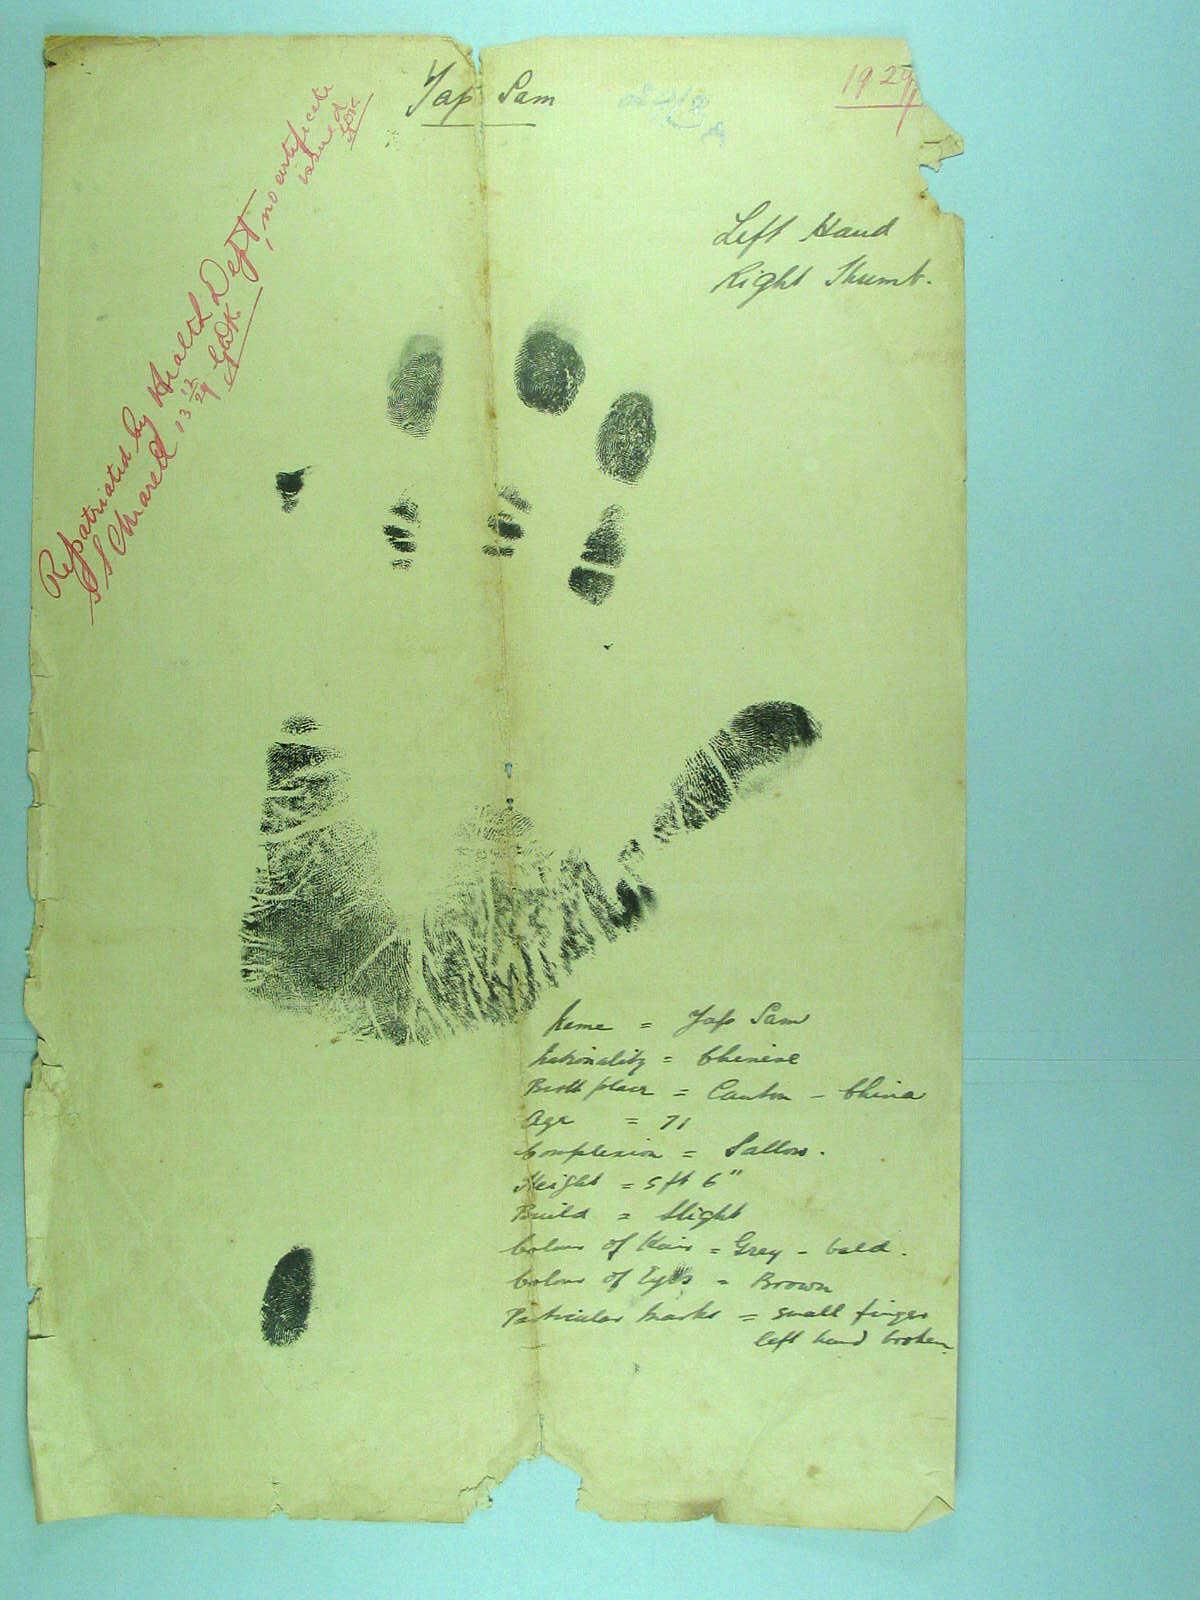 Yap Sam
1929
Left Hand
Right Thumb.
Repatriated by Health Dept, no certificate
issued
SS Mared 13 12/29
Name = Yap Sam
Nationality = Chinese
Birth place = Canton - China
Age = 71
Complexion = Sallow.
Height = 5 ft 6"
Build = Slight
Colour of Hair = Grey - bald.
Colour of Eyes = Brown
Particular marks = small finger
left hand broken.